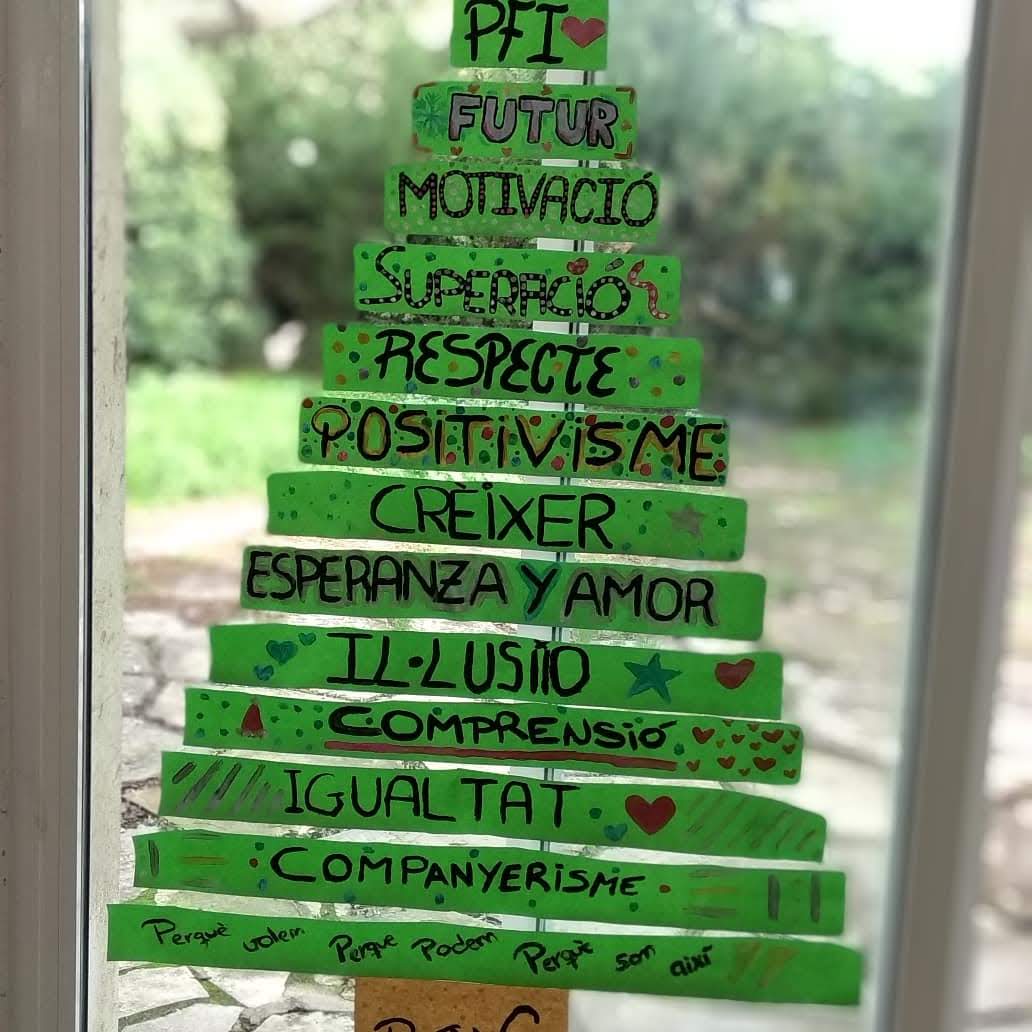 PFI
FUTUR
MOTIVACIÓ
SUPERACIÓ
RESPECTE
POSITIVISME
CRÈIXER
ESPERANZA Y AMOR
IL·LUSIÓ
COMPRENSIÓ
IGUALTAT
COMPANYERISME
Perquè volem Perque Podem Perquè som així